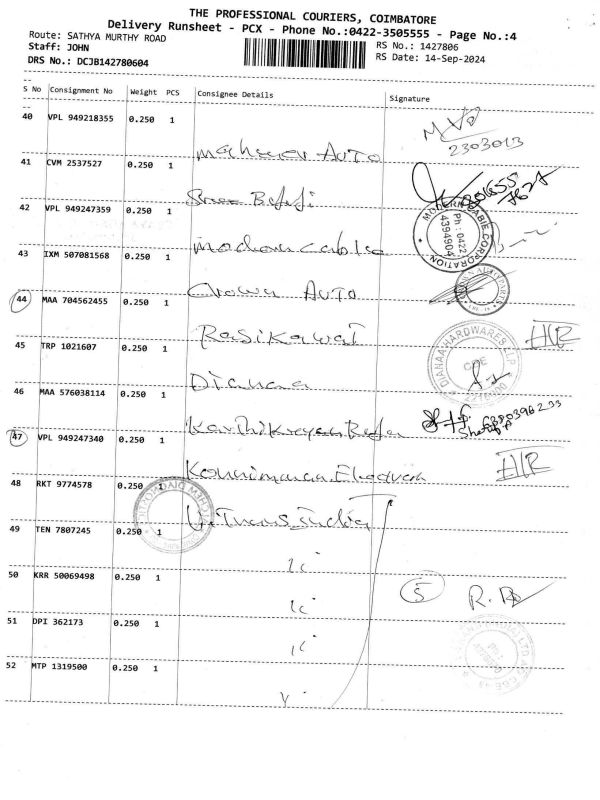 THE PROFESSIONAL COURIERS, COIMBATORE
Delivery Runsheet - PCX - Phone No.:0422-3505555 - Page No.:4
Route: SATHYA MURTHY ROAD
Staff: JOHN
RS No.: 1427806
DRS No.: DCJB142780604
RS Date: 14-Sep-2024
S No Consignment No Weight PCS Consignee Details Signature
40 VPL 949218355 0.250 1
2303013
Auto
41 CVM 2537527 0.250 1
Sree Balaji
42 VPL 949247359 0.250 1
MODERN CABLE CORPORATION
Ph : 0422
4394904
Modern Cable
43 IXM 507081568 0.250 1
Crown Auto
44 MAA 704562455 1 0.250
Rasikawat
45 TRP 1021607 0.250 1
DIANAA HARDWARES LLP
CBE
Dianaa
46 MAA 576038114 0.250 1
47 VPL 949247340 0.250 1
48 RKT 9774578 0.250 1
V-Trans India
49 TEN 7807245 0.250 1
50 KRR 50069498 0.250 1
5
51 DPI 362173 0.250 1
52 MTP 1319500 0.250 1